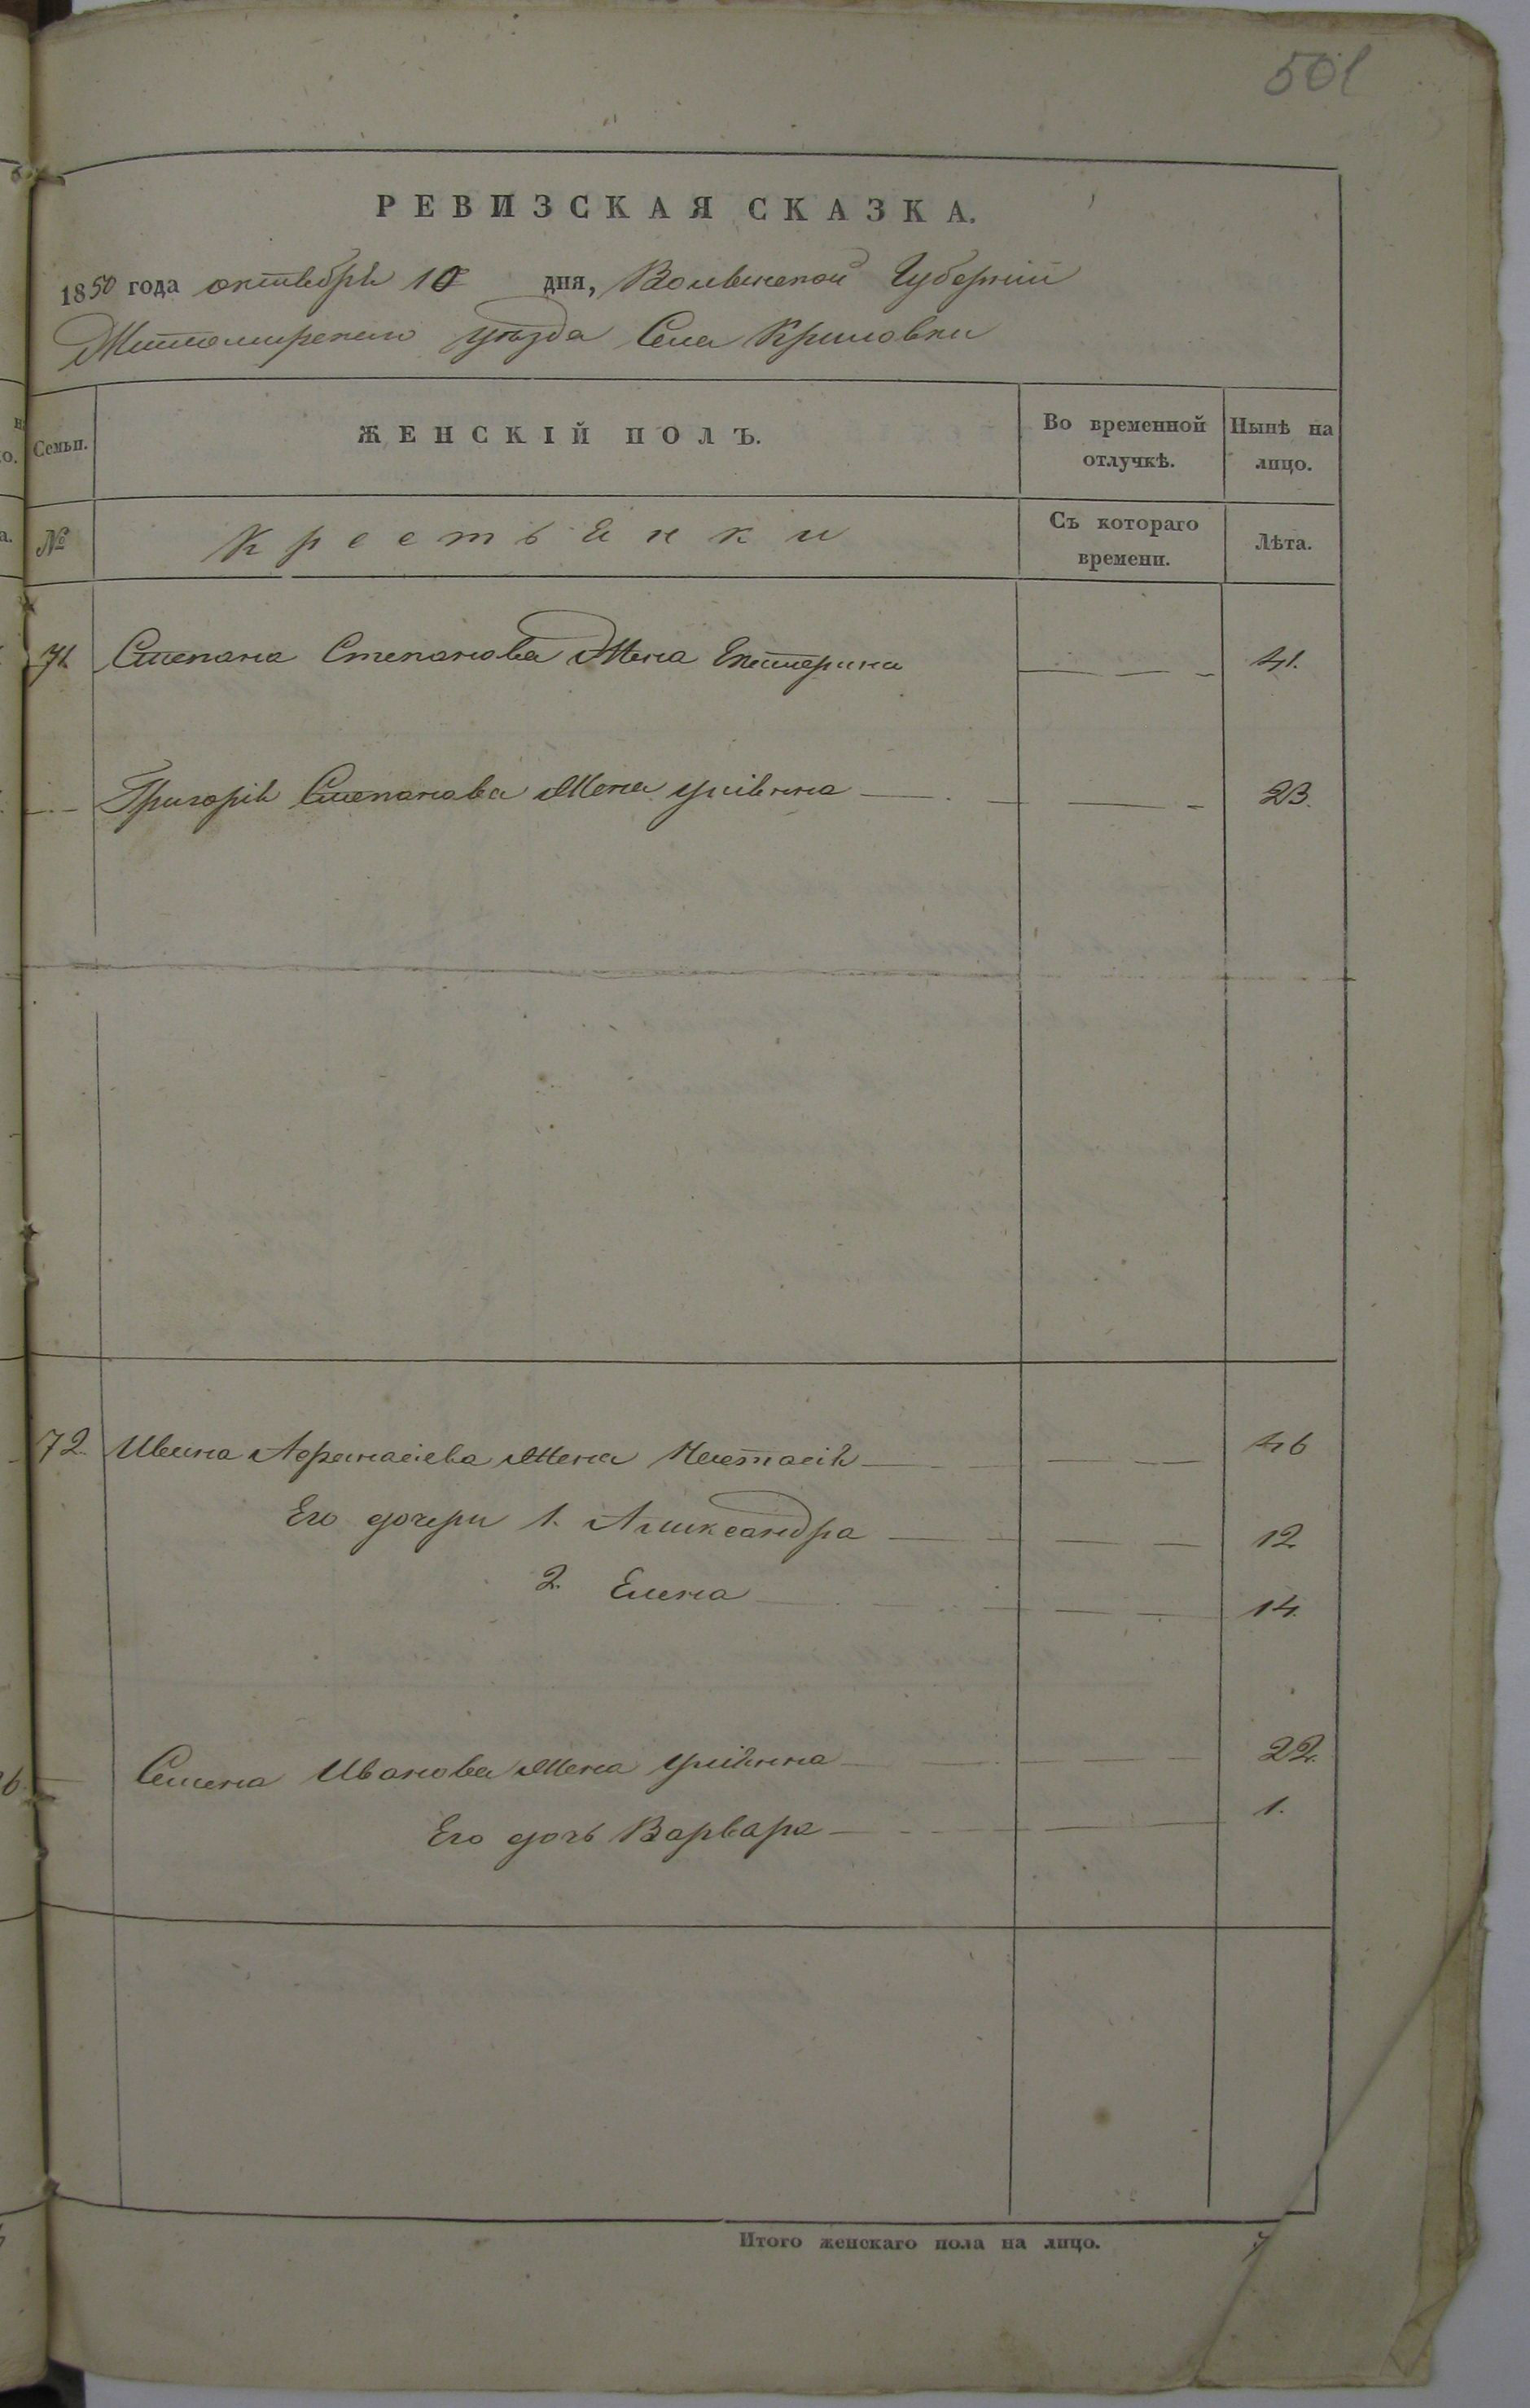 501
РЕВИЗСКАЯ СКАЗКА.
1850 года октября 10 дня, Волынской Губерніи
Житомирскаго уѣзда Села Криловки
Семьи.
ЖЕНСКІЙ ПОЛЪ.
Во временной отлучкѣ.
Нынѣ на лицо.
№
Крестьянки
Съ котораго времени.
Лѣта.
71. Степана Степанова Жена Екатерина 41.
Григорія Степанова Жена уліянна 23.
72. Ивана Афанасіева Жена Настасія 46
Его дочери 1. Александра 12
2. Елена 14.
Семена Иванова Жена уліянна 22.
Его дочь Варвара 1.
Итого женскаго пола на лицо.